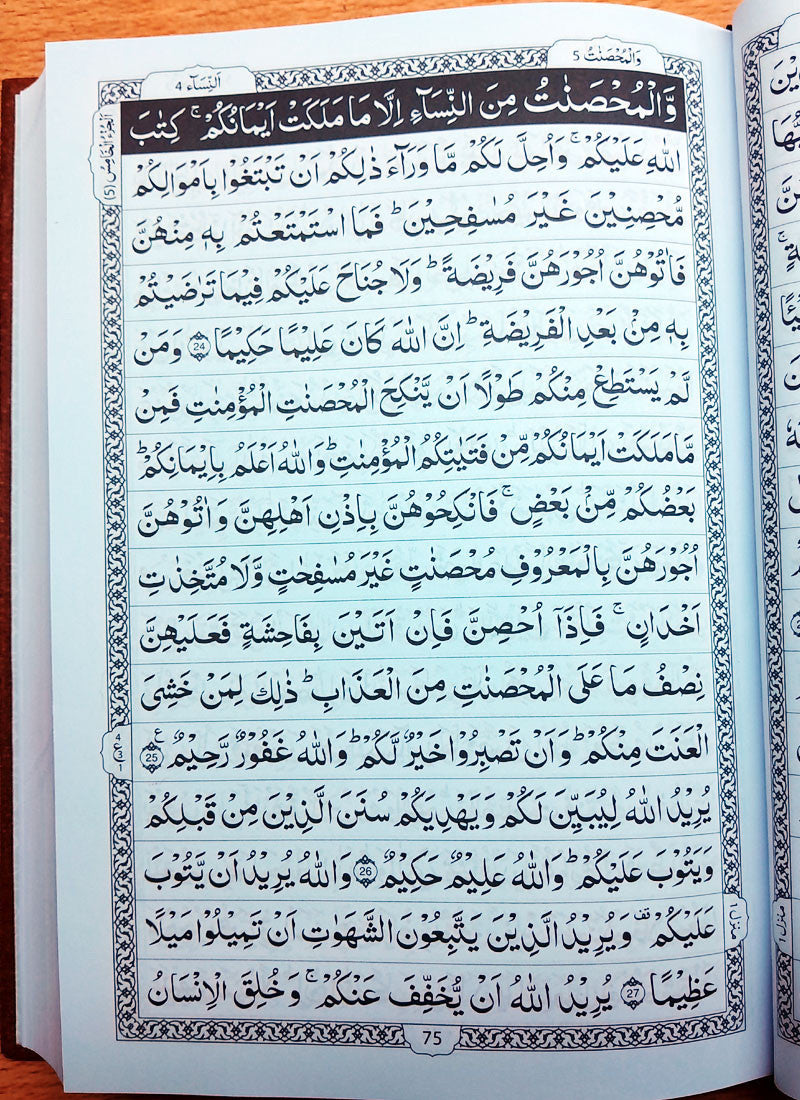 وَالْمُحْصَنٰتُ 5
اَلنِّسَآء 4
وَّالْمُحْصَنٰتُ مِنَ النِّسَآءِ اِلَّا مَا مَلَكَتْ اَيْمَانُكُمْ ۚ كِتٰبَ
اللّٰهِ عَلَيْكُمْ ۚ وَاُحِلَّ لَكُمْ مَّا وَرَآءَ ذٰلِكُمْ اَنْ تَبْتَغُوْا بِاَمْوَالِكُمْ
مُّحْصِنِيْنَ غَيْرَ مُسٰفِحِيْنَ ؕ فَمَا اسْتَمْتَعْتُمْ بِهٖ مِنْهُنَّ
فَاٰتُوْهُنَّ اُجُوْرَهُنَّ فَرِيْضَةً ؕ وَلَا جُنَاحَ عَلَيْكُمْ فِيْمَا تَرٰضَيْتُمْ
بِهٖ مِنْۢ بَعْدِ الْفَرِيْضَةِ ؕ اِنَّ اللّٰهَ كَانَ عَلِيْمًا حَكِيْمًا 24 وَمَنْ
لَّمْ يَسْتَطِعْ مِنْكُمْ طَوْلًا اَنْ يَّنْكِحَ الْمُحْصَنٰتِ الْمُؤْمِنٰتِ فَمِنْ
مَّا مَلَكَتْ اَيْمَانُكُمْ مِّنْ فَتَيٰتِكُمُ الْمُؤْمِنٰتِ ؕ وَاللّٰهُ اَعْلَمُ بِاِيْمَانِكُمْ ؕ
بَعْضُكُمْ مِّنْۢ بَعْضٍ ۚ فَانْكِحُوْهُنَّ بِاِذْنِ اَهْلِهِنَّ وَاٰتُوْهُنَّ
اُجُوْرَهُنَّ بِالْمَعْرُوْفِ مُحْصَنٰتٍ غَيْرَ مُسٰفِحٰتٍ وَّلَا مُتَّخِذٰتِ
اَخْدَانٍ ۚ فَاِذَاۤ اُحْصِنَّ فَاِنْ اَتَيْنَ بِفَاحِشَةٍ فَعَلَيْهِنَّ
نِصْفُ مَا عَلَى الْمُحْصَنٰتِ مِنَ الْعَذَابِ ؕ ذٰلِكَ لِمَنْ خَشِىَ
الْعَنَتَ مِنْكُمْ ؕ وَاَنْ تَصْبِرُوْا خَيْرٌ لَّكُمْ ؕ وَاللّٰهُ غَفُوْرٌ رَّحِيْمٌ 25 ع
يُرِيْدُ اللّٰهُ لِيُبَيِّنَ لَكُمْ وَيَهْدِيَكُمْ سُنَنَ الَّذِيْنَ مِنْ قَبْلِكُمْ
وَيَتُوْبَ عَلَيْكُمْ ؕ وَاللّٰهُ عَلِيْمٌ حَكِيْمٌ 26 وَاللّٰهُ يُرِيْدُ اَنْ يَّتُوْبَ
عَلَيْكُمْ قف وَيُرِيْدُ الَّذِيْنَ يَتَّبِعُوْنَ الشَّهَوٰتِ اَنْ تَمِيْلُوْا مَيْلًا
عَظِيْمًا 27 يُرِيْدُ اللّٰهُ اَنْ يُّخَفِّفَ عَنْكُمْ ۚ وَخُلِقَ الْاِنْسَانُ
اَلْجُزْءُ الْخَامِسُ (5)
4
ع 3
1
منزل ١
75